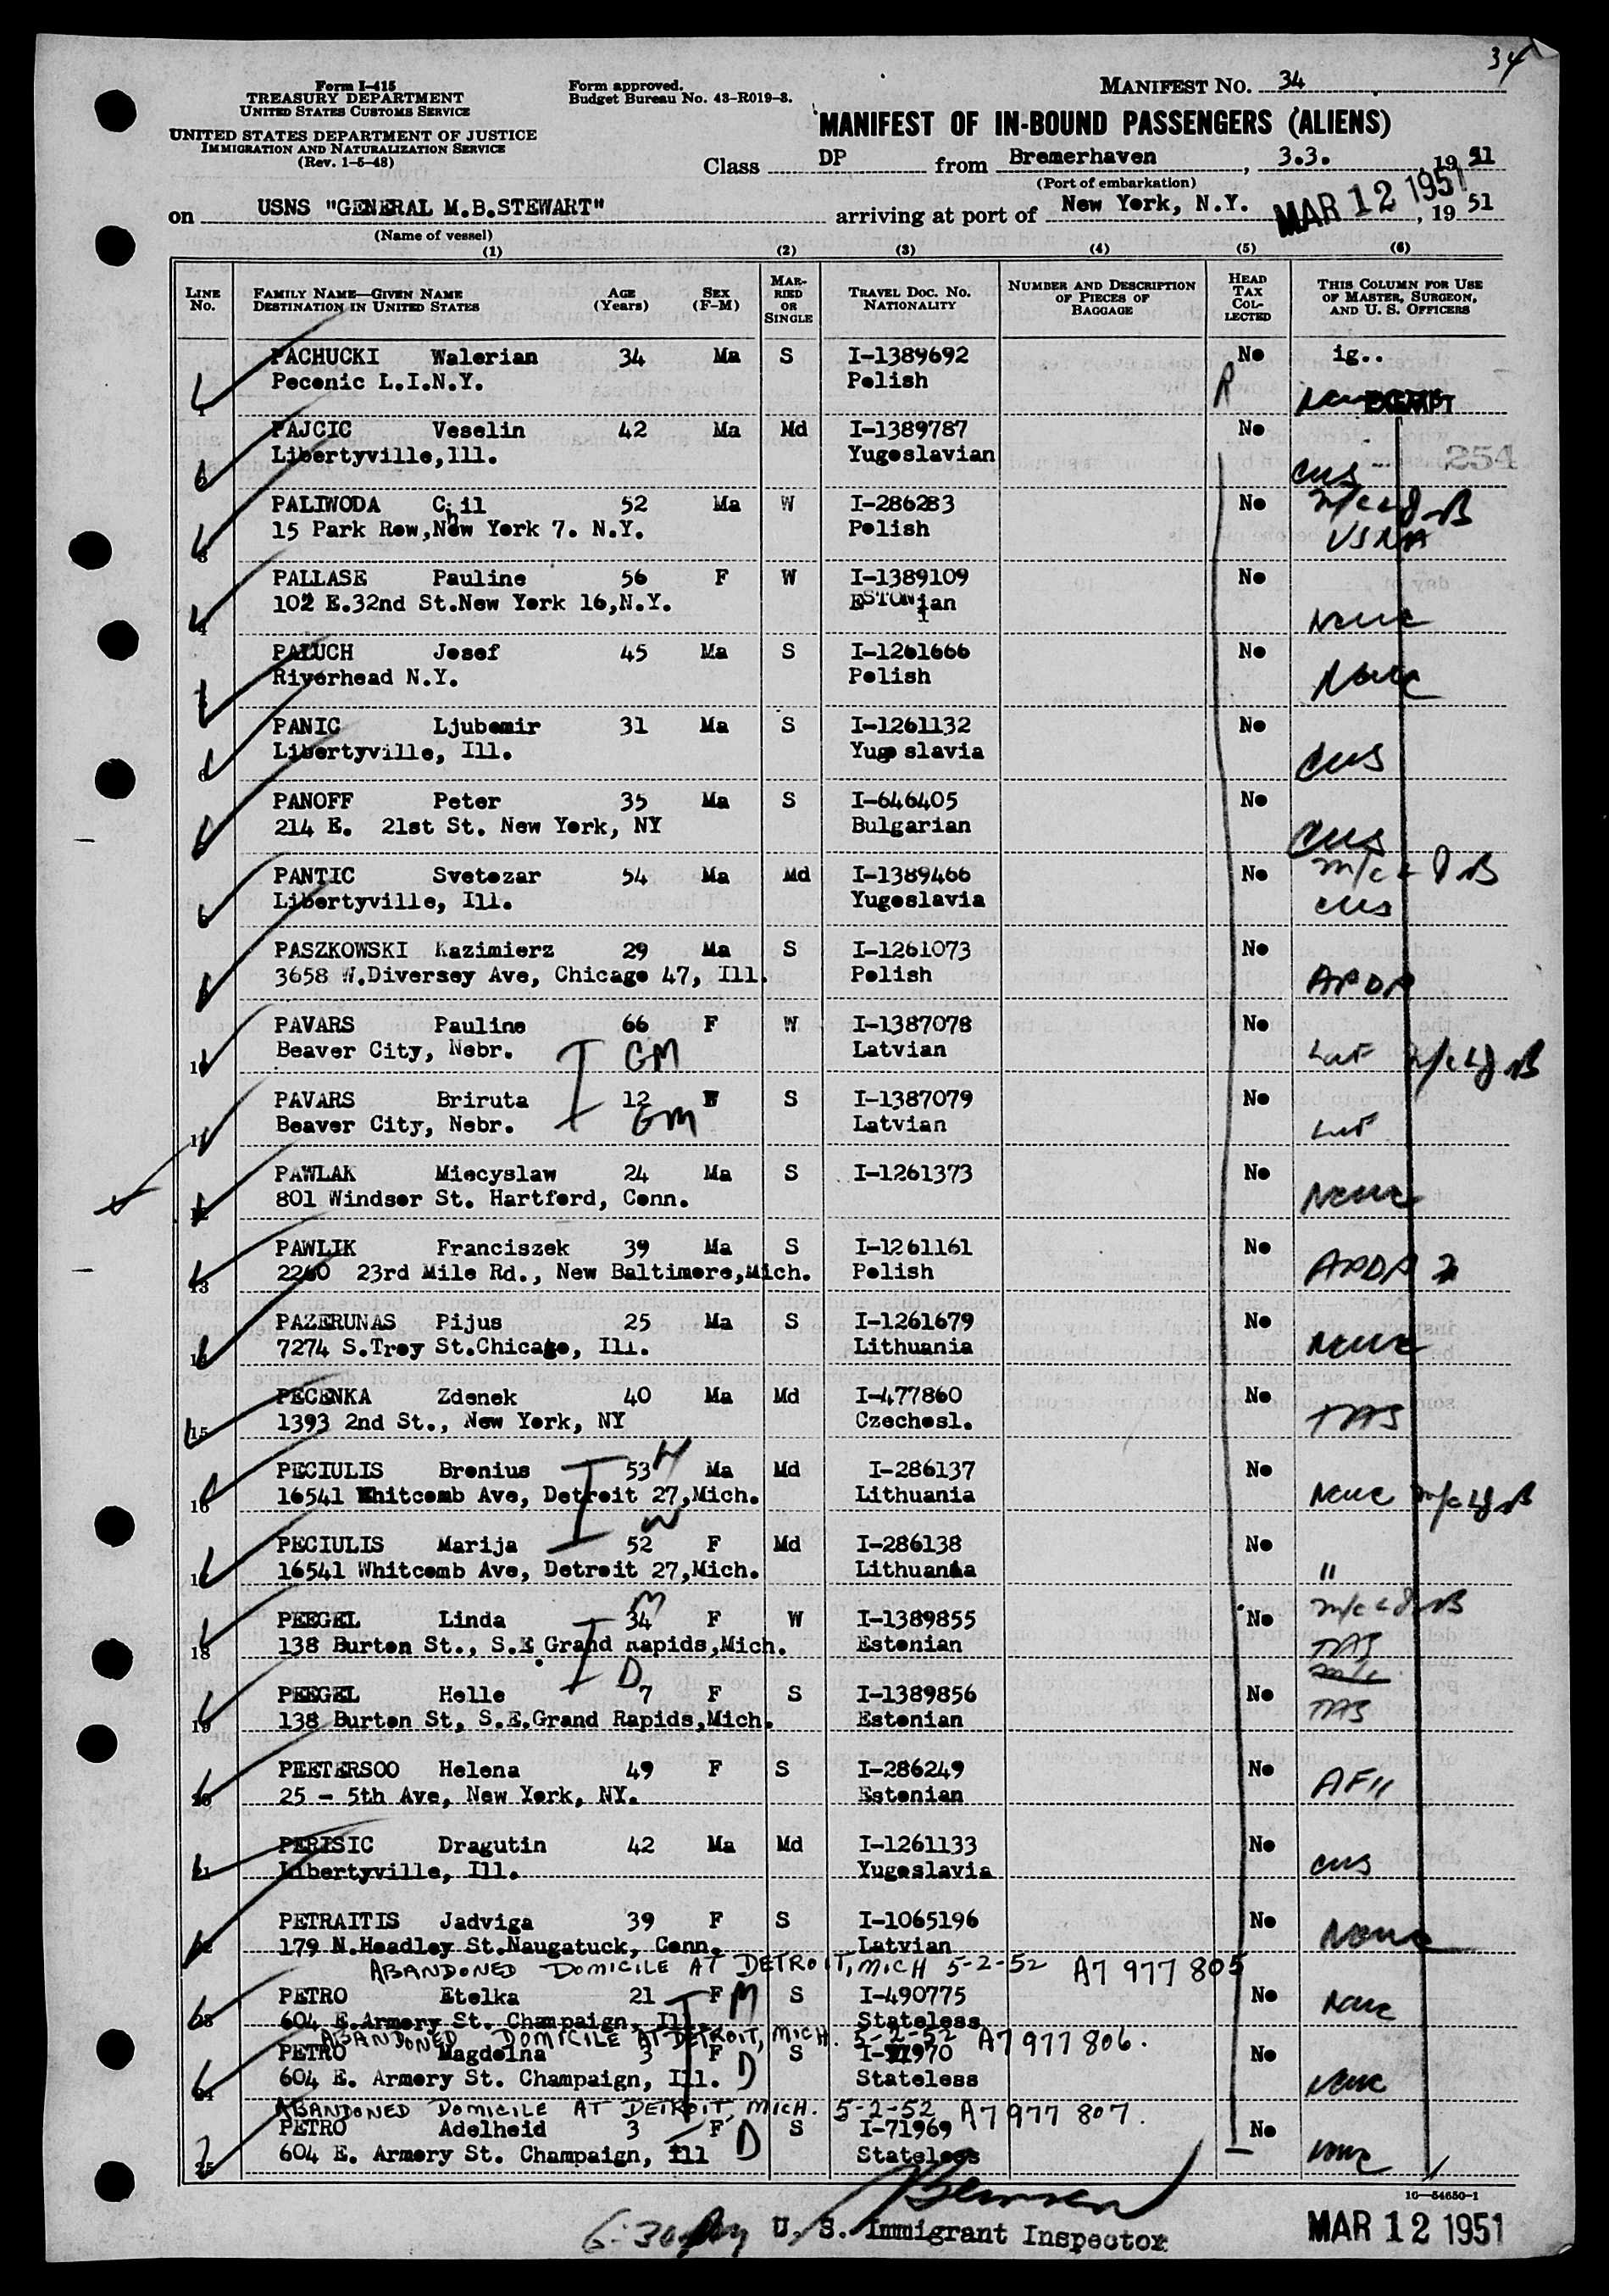 34
Form I-415
TREASURY DEPARTMENT
UNITED STATES CUSTOMS SERVICE
UNITED STATES DEPARTMENT OF JUSTICE
IMMIGRATION AND NATURALIZATION SERVICE
(Rev. 1-5-48)
Form approved.
Budget Bureau No. 43-R019-3.
MANIFEST NO. 34
MANIFEST OF IN-BOUND PASSENGERS (ALIENS)
Class DP from Bremerhaven, 3.3., 1951
(Port of embarkation)
on USNS "GENERAL M.B.STEWART" arriving at port of New York, N.Y. MAR 12 1951, 19 51
(Name of vessel)
(1) (2) (3) (4) (5) (6)
LINE NO. FAMILY NAME—GIVEN NAME DESTINATION IN UNITED STATES AGE (Years) SEX (F-M) MARRIED OR SINGLE TRAVEL DOC. NO. NATIONALITY NUMBER AND DESCRIPTION OF PIECES OF BAGGAGE HEAD TAX COLLECTED THIS COLUMN FOR USE OF MASTER, SURGEON, AND U. S. OFFICERS
PACHUCKI Walerian 34 Ma S I-1389692 No ig..
1 Peconic L.I.N.Y. Polish R None EXEMPT
PAJCIC Veselin 42 Ma Md I-1389787 No
2 Libertyville,Ill. Yugoslavian CWS 254
PALIWODA Chil 52 Ma W I-286283 No
3 15 Park Row,New York 7. N.Y. Polish USNA
PALLASE Pauline 56 F W I-1389109 No
4 102 E.32nd St.New York 16,N.Y. ESTONian None
PALUCH Josef 45 Ma S I-1261666 No
5 Riverhead N.Y. Polish None
PANIC Ljubomir 31 Ma S I-1261132 No
6 Libertyville, Ill. Yugo slavia CWS
PANOFF Peter 35 Ma S I-646405 No
7 214 E. 21st St. New York, NY Bulgarian CWS
PANTIC Svetozar 54 Ma Md I-1389466 No
8 Libertyville, Ill. Yugoslavia CWS
PASZKOWSKI Kazimierz 29 Ma S I-1261073 No
9 3658 W.Diversey Ave, Chicago 47, Ill. Polish APDR
PAVARS Pauline 66 F W I-1387078 No
10 Beaver City, Nebr. GM Latvian LWF
PAVARS Briruta 12 F S I-1387079 No
11 Beaver City, Nebr. GM Latvian LWF
PAWLAK Miecyslaw 24 Ma S I-1261373 No
12 801 Windsor St. Hartford, Conn. None
PAWLIK Franciszek 39 Ma S I-1261161 No
13 2260 23rd Mile Rd., New Baltimore,Mich. Polish APDR
PAZERUNAS Pijus 25 Ma S I-1261679 No
14 7274 S.Troy St.Chicago, Ill. Lithuania None
PECENKA Zdenek 40 Ma Md I-477860 No
15 1393 2nd St., New York, NY Czechosl. TAS
PECIULIS Bronius 53 H Ma Md I-286137 No
16 16541 Whitcomb Ave, Detroit 27,Mich. Lithuania None
PECIULIS Marija 52 W F Md I-286138 No
17 16541 Whitcomb Ave, Detroit 27,Mich. Lithuania "
PEEGEL Linda 34 M F W I-1389855 No
18 138 Burton St., S.E. Grand Rapids,Mich. Estonian TAS
PEEGEL Helle D 7 F S I-1389856 No
19 138 Burton St, S.E.Grand Rapids,Mich. Estonian TAS
PEETERSOO Helena 49 F S I-286249 No
20 25 - 5th Ave, New York, NY. Estonian
PERISIC Dragutin 42 Ma Md I-1261133 No
21 Libertyville, Ill. Yugoslavia CWS
PETRAITIS Jadviga 39 F S I-1065196 No
22 179 N.Hoadley St.Naugatuck, Conn. Latvian None
ABANDONED DOMICILE AT DETROIT, MICH 5-2-52 A7 977 805
PETRO Etelka 21 F M S I-490775 No
23 604 E.Armory St. Champaign, Ill. Stateless None
ABANDONED DOMICILE AT DETROIT, MICH. 5-2-52 A7 977 806.
PETRO Magdolna 3 F S I-71970 No
24 604 E. Armory St. Champaign, Ill. D Stateless None
ABANDONED DOMICILE AT DETROIT, MICH. 5-2-52 A7 977 807.
PETRO Adelheid 3 F S I-71969 No
25 604 E. Armory St. Champaign, Ill D Stateless None
16—54650-1
U. S. Immigrant Inspector
MAR 12 1951